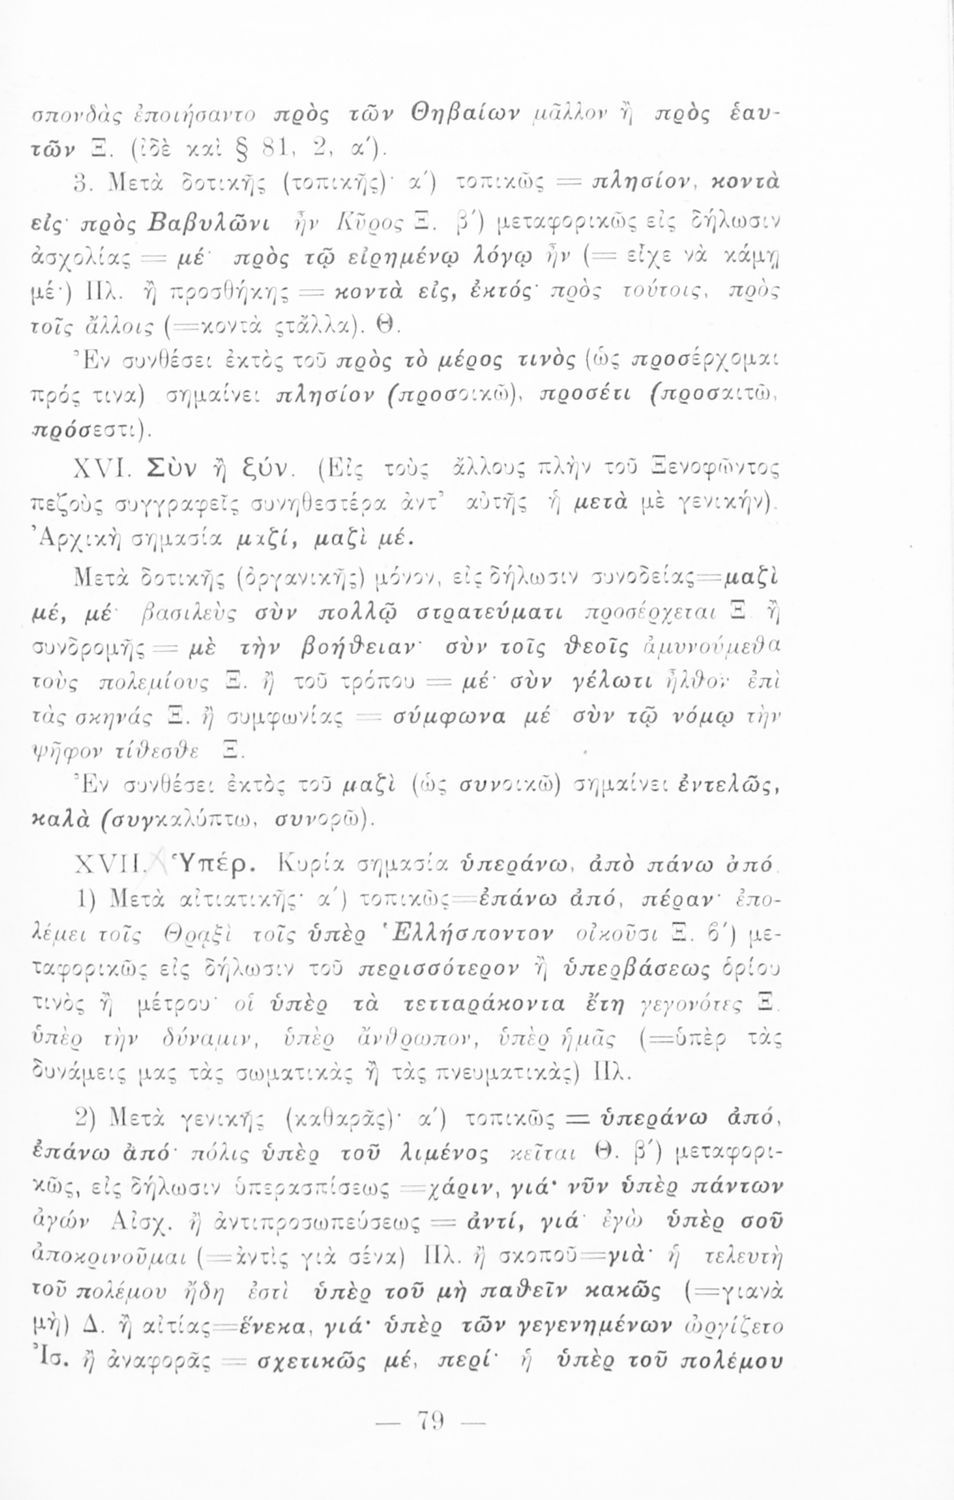 σπονδὰς ἐποιήσαντο πρὸς τῶν Θηβαίων μᾶλλον ἢ πρὸς ἑαυ-
τῶν Ξ. (ἰδὲ καὶ § 81, 2, α').
3. Μετὰ δοτικῆς (τοπικῆς)· α') τοπικῶς = πλησίον, κοντὰ
εἰς· πρὸς Βαβυλῶνι ἦν Κῦρος Ξ. β') μεταφορικῶς εἰς δήλωσιν
ἀσχολίας = μέ· πρὸς τῷ εἰρημένῳ λόγῳ ἦν (= εἶχε νὰ κάμῃ
μέ·) Πλ. ἢ προσθήκης = κοντὰ εἰς, ἐκτός· πρὸς τούτοις, πρὸς
τοῖς ἄλλοις (=κοντὰ ςτἄλλα). Θ.
Ἐν συνθέσει ἐκτὸς τοῦ πρὸς τὸ μέρος τινὸς (ὡς προσέρχομαι
πρός τινα) σημαίνει πλησίον (προσοικῶ), προσέτι (προσαιτῶ,
πρόσεστι).
XVI. Σὺν ἢ ξύν. (Εἰς τοὺς ἄλλους πλὴν τοῦ Ξενοφῶντος
πεζοὺς συγγραφεῖς συνηθεστέρα ἀντ' αὐτῆς ἡ μετὰ μὲ γενικήν).
Ἀρχικὴ σημασία μαζί, μαζὶ μέ.
Μετὰ δοτικῆς (ὀργανικῆς) μόνον, εἰς δήλωσιν συνοδείας=μαζὶ
μέ, μέ· βασιλεὺς σὺν πολλῷ στρατεύματι προσέρχεται Ξ ἢ
συνδρομῆς = μὲ τὴν βοήθειαν· σὺν τοῖς θεοῖς ἀμυνούμεθα
τοὺς πολεμίους Ξ. ἢ τοῦ τρόπου = μέ· σὺν γέλωτι ἦλθον ἐπὶ
τὰς σκηνάς Ξ. ἢ συμφωνίας = σύμφωνα μέ σὺν τῷ νόμῳ τὴν
ψῆφον τίθεσθε Ξ.
Ἐν συνθέσει ἐκτὸς τοῦ μαζὶ (ὡς συνοικῶ) σημαίνει ἐντελῶς,
καλὰ (συγκαλύπτω, συνορῶ).
XVII. Ὑπέρ. Κυρία σημασία ὑπεράνω, ἀπὸ πάνω ἀπό.
1) Μετὰ αἰτιατικῆς· α') τοπικῶς=ἐπάνω ἀπό, πέραν· ἐπο-
λέμει τοῖς Θρᾳξὶ τοῖς ὑπὲρ Ἑλλήσποντον οἰκοῦσι Ξ. β') με-
ταφορικῶς εἰς δήλωσιν τοῦ περισσότερον ἢ ὑπερβάσεως ὁρίου
τινὸς ἢ μέτρου· οἱ ὑπὲρ τὰ τετταράκοντα ἔτη γεγονότες Ξ.
ὑπὲρ τὴν δύναμιν, ὑπὲρ ἄνθρωπον, ὑπὲρ ἡμᾶς (=ὑπὲρ τὰς
δυνάμεις μας τὰς σωματικὰς ἢ τὰς πνευματικὰς) Πλ.
2) Μετὰ γενικῆς (καθαρᾶς)· α') τοπικῶς = ὑπεράνω ἀπό,
ἐπάνω ἀπό· πόλις ὑπὲρ τοῦ λιμένος κεῖται Θ. β') μεταφορι-
κῶς, εἰς δήλωσιν ὑπερασπίσεως =χάριν, γιά· νῦν ὑπὲρ πάντων
ἀγών Αἰσχ. ἢ ἀντιπροσωπεύσεως = ἀντί, γιά· ἐγὼ ὑπὲρ σοῦ
ἀποκρινοῦμαι (=ἀντὶς γιὰ σένα) Πλ. ἢ σκοποῦ=γιὰ· ἡ τελευτὴ
τοῦ πολέμου ἤδη ἐστὶ ὑπὲρ τοῦ μὴ παθεῖν κακῶς (=γιανὰ
μὴ) Δ. ἢ αἰτίας=ἕνεκα, γιά· ὑπὲρ τῶν γεγενημένων ὠργίζετο
Ἰσ. ἢ ἀναφορᾶς = σχετικῶς μέ, περί· ἡ ὑπὲρ τοῦ πολέμου
— 79 —